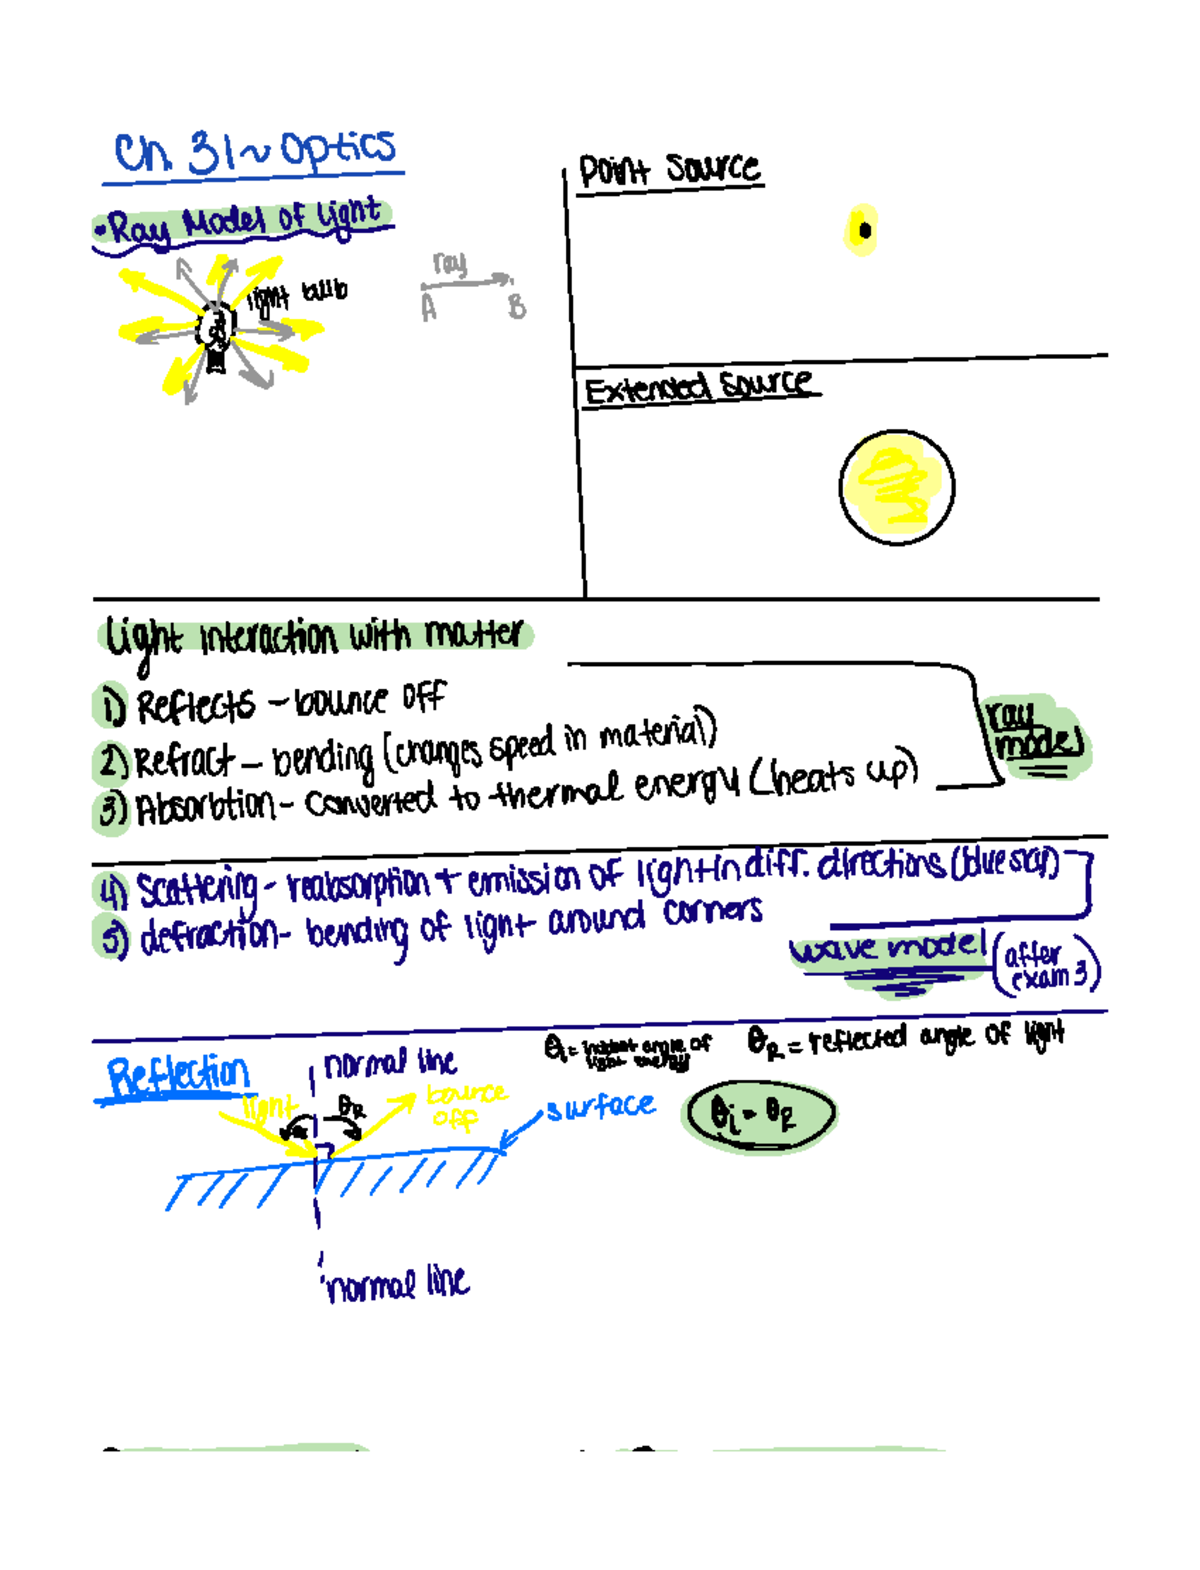 Ch. 31 ~ Optics
• Ray Model of light
light bulb
ray
A B
Point Source
Extended Source
light interaction with matter
1) Reflects - bounce off
2) Refract - bending (changes speed in material)
3) Absorbtion - converted to thermal energy (heats up)
ray model
4) Scattering - reabsorption + emission of light in diff. directions (blue sky)
5) defraction - bending of light around corners
wave model (after exam 3)
Reflection
normal line
light
θR
bounce off
surface
θi = incident angle of light
θR = reflected angle of light
θi = θR
normal line